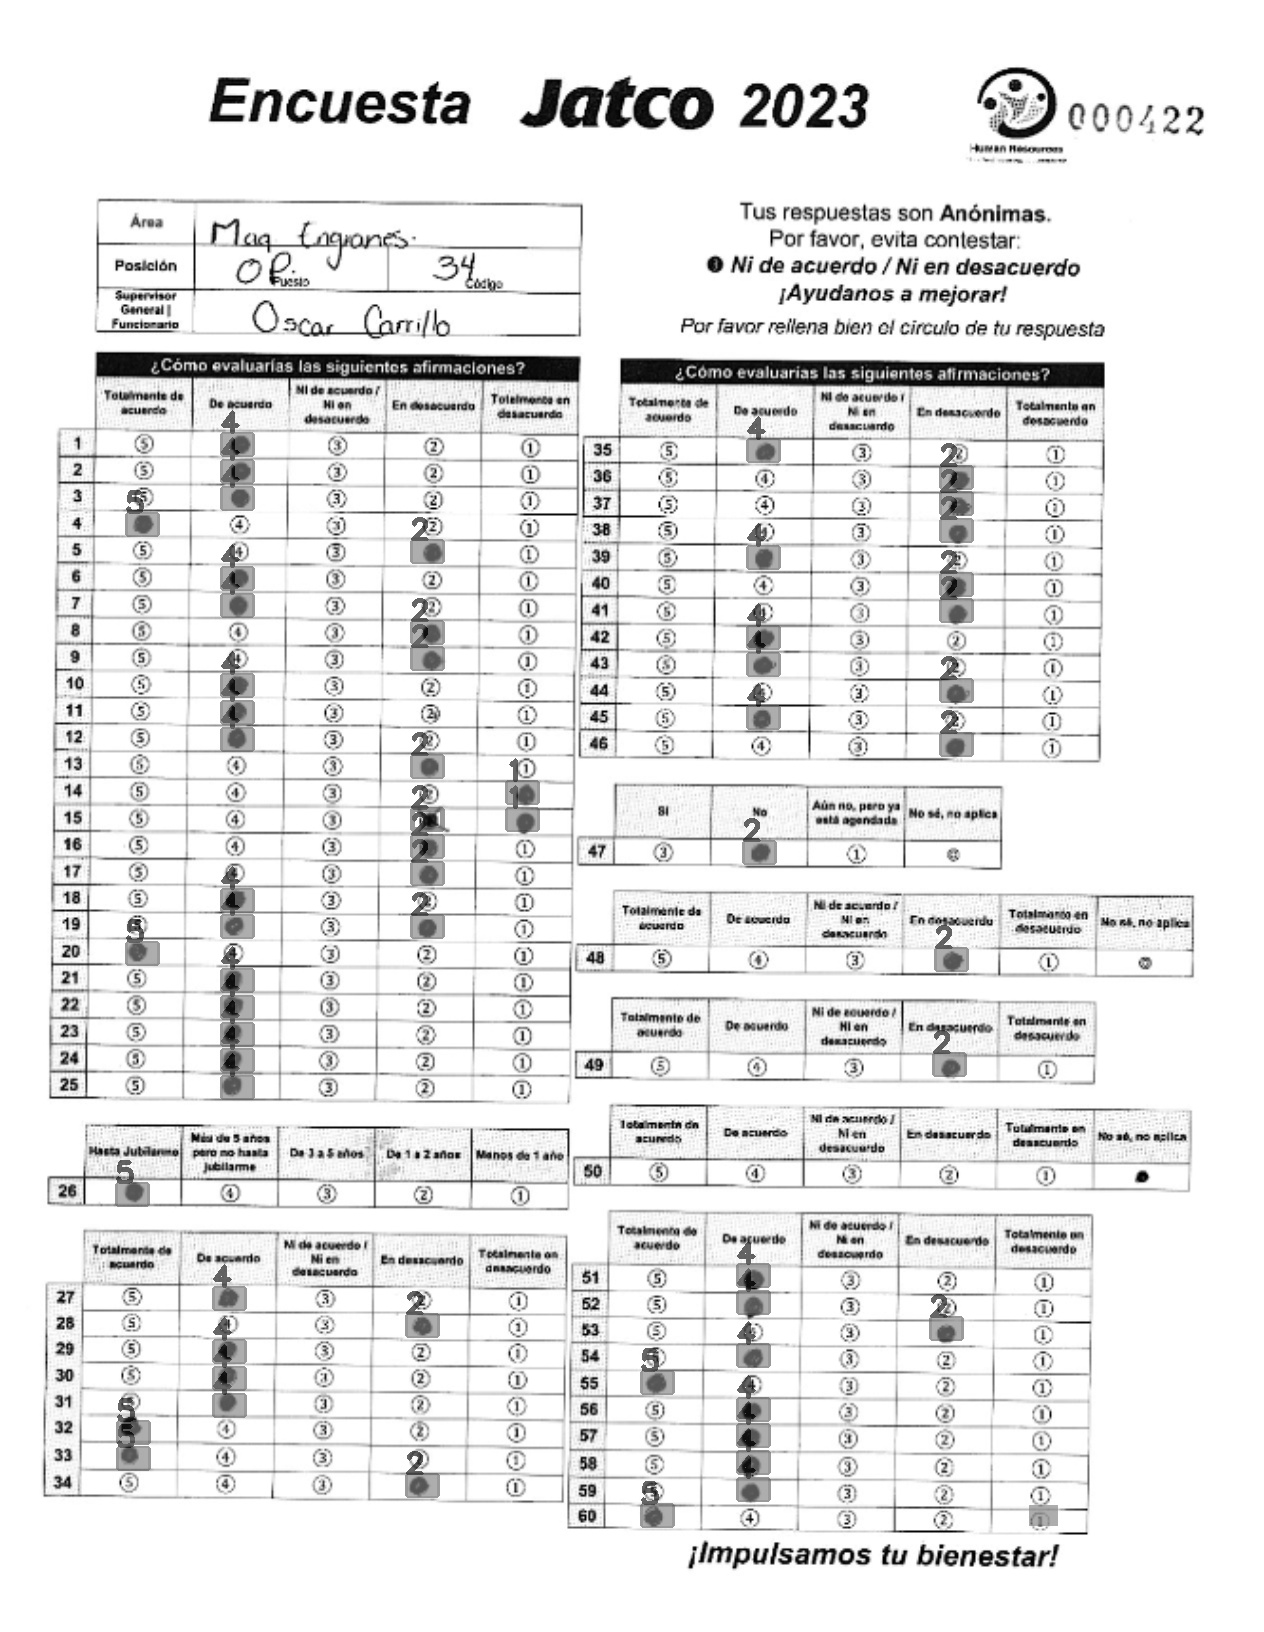 Encuesta Jatco 2023
Human Resources
000422
Área
Maq Engranes.
Posición
OP.
Puesto
34
Código
Supervisor
General |
Funcionario
Oscar Carrillo
Tus respuestas son Anónimas.
Por favor, evita contestar:
❸ Ni de acuerdo / Ni en desacuerdo
¡Ayudanos a mejorar!
Por favor rellena bien el circulo de tu respuesta
¿Cómo evaluarías las siguientes afirmaciones?
Totalmente de acuerdo De acuerdo Ni de acuerdo / Ni en desacuerdo En desacuerdo Totalmente en desacuerdo
1 ⑤ 4 ③ ② ①
2 ⑤ 4 ③ ② ①
3 ⑤ 4 ③ ② ①
4 5 ④ ③ ② ①
5 ⑤ ④ ③ 2 ①
6 ⑤ 4 ③ ② ①
7 ⑤ 4 ③ ② ①
8 ⑤ ④ ③ 2 ①
9 ⑤ ④ ③ 2 ①
10 ⑤ 4 ③ ② ①
11 ⑤ 4 ③ ② ①
12 ⑤ 4 ③ ② ①
13 ⑤ ④ ③ 2 ①
14 ⑤ ④ ③ ② 1
15 ⑤ ④ ③ 2 1
16 ⑤ ④ ③ 2 ①
17 ⑤ ④ ③ 2 ①
18 ⑤ 4 ③ ② ①
19 ⑤ 4 ③ 2 ①
20 5 ④ ③ ② ①
21 ⑤ 4 ③ ② ①
22 ⑤ 4 ③ ② ①
23 ⑤ 4 ③ ② ①
24 ⑤ 4 ③ ② ①
25 ⑤ 4 ③ ② ①
Hasta Jubilarme Más de 5 años pero no hasta jubilarme De 3 a 5 años De 1 a 2 años Menos de 1 año
26 5 ④ ③ ② ①
Totalmente de acuerdo De acuerdo Ni de acuerdo / Ni en desacuerdo En desacuerdo Totalmente en desacuerdo
27 ⑤ 4 ③ ② ①
28 ⑤ ④ ③ 2 ①
29 ⑤ 4 ③ ② ①
30 ⑤ 4 ③ ② ①
31 ⑤ 4 ③ ② ①
32 5 ④ ③ ② ①
33 5 ④ ③ ② ①
34 ⑤ ④ ③ 2 ①
¿Cómo evaluarías las siguientes afirmaciones?
Totalmente de acuerdo De acuerdo Ni de acuerdo / Ni en desacuerdo En desacuerdo Totalmente en desacuerdo
35 ⑤ 4 ③ ② ①
36 ⑤ ④ ③ 2 ①
37 ⑤ ④ ③ 2 ①
38 ⑤ ④ ③ 2 ①
39 ⑤ 4 ③ ② ①
40 ⑤ ④ ③ 2 ①
41 ⑤ ④ ③ 2 ①
42 ⑤ 4 ③ ② ①
43 ⑤ 4 ③ ② ①
44 ⑤ ④ ③ 2 ①
45 ⑤ 4 ③ ② ①
46 ⑤ ④ ③ 2 ①
Si No Aún no, pero ya está agendada No sé, no aplica
47 ③ 2 ① ⓪
Totalmente de acuerdo De acuerdo Ni de acuerdo / Ni en desacuerdo En desacuerdo Totalmente en desacuerdo No sé, no aplica
48 ⑤ ④ ③ 2 ① ⓪
Totalmente de acuerdo De acuerdo Ni de acuerdo / Ni en desacuerdo En desacuerdo Totalmente en desacuerdo
49 ⑤ ④ ③ 2 ①
Totalmente de acuerdo De acuerdo Ni de acuerdo / Ni en desacuerdo En desacuerdo Totalmente en desacuerdo No sé, no aplica
50 ⑤ ④ ③ ② ①
Totalmente de acuerdo De acuerdo Ni de acuerdo / Ni en desacuerdo En desacuerdo Totalmente en desacuerdo
51 ⑤ 4 ③ ② ①
52 ⑤ 4 ③ ② ①
53 ⑤ ④ ③ 2 ①
54 ⑤ 4 ③ ② ①
55 5 ④ ③ ② ①
56 ⑤ 4 ③ ② ①
57 ⑤ 4 ③ ② ①
58 ⑤ 4 ③ ② ①
59 ⑤ 4 ③ ② ①
60 5 ④ ③ ② ①
¡Impulsamos tu bienestar!